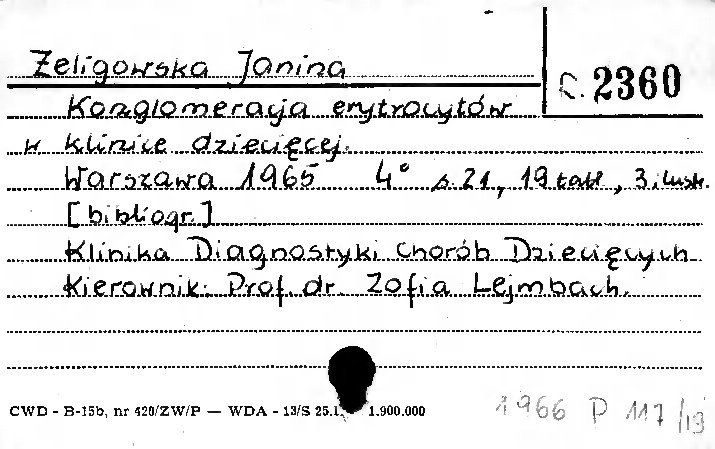 Żeligowska Janina
C. 2360
Konglomeracja erytrocytów
w klinice dziecięcej.
Warszawa 1965 4° s. 21, 19 tabl, 3 ilustr.
[bibliogr.]
Klinika Diagnostyki Chorób Dziecięcych
Kierownik: Prof. dr. Zofia Lejmbach.
CWD - B-15b, nr 420/ZW/P — WDA - 13/S 25.1 1.900.000
1966 P 117/19